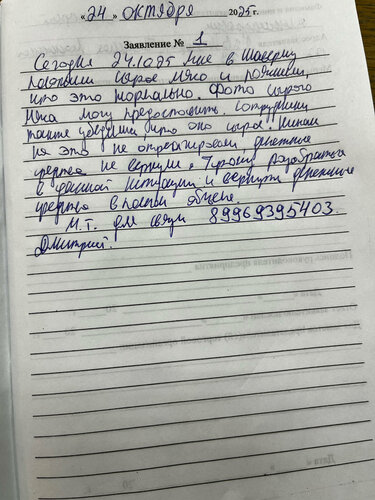 «24» октября 2025г.
Заявление № 1
Сегодня 24.10.25 мне в шаверму
положили сырое мясо и пояснили,
что это нормально. Фото сырого
мяса могу предоставить. Сотрудники
также увидели что оно сырое. Никак
на это не отреагировали, денежные
средства не вернули. Прошу разобраться
в данной ситуации и вернуть денежные
средства в полном объеме.
М.Т. для связи 89969395403.
Дмитрий.